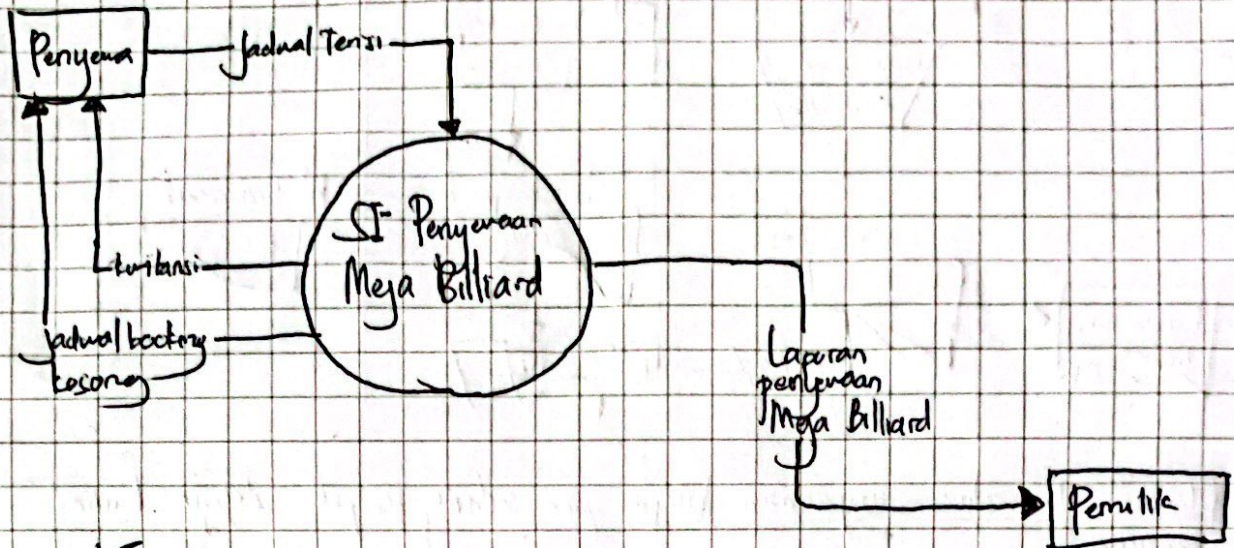 Penyewa
Jadwal Terisi
SI Penyewaan
Meja Billiard
kwitansi
jadwal booking
kosong
Laporan
penyewaan
Meja Billiard
Pemilik